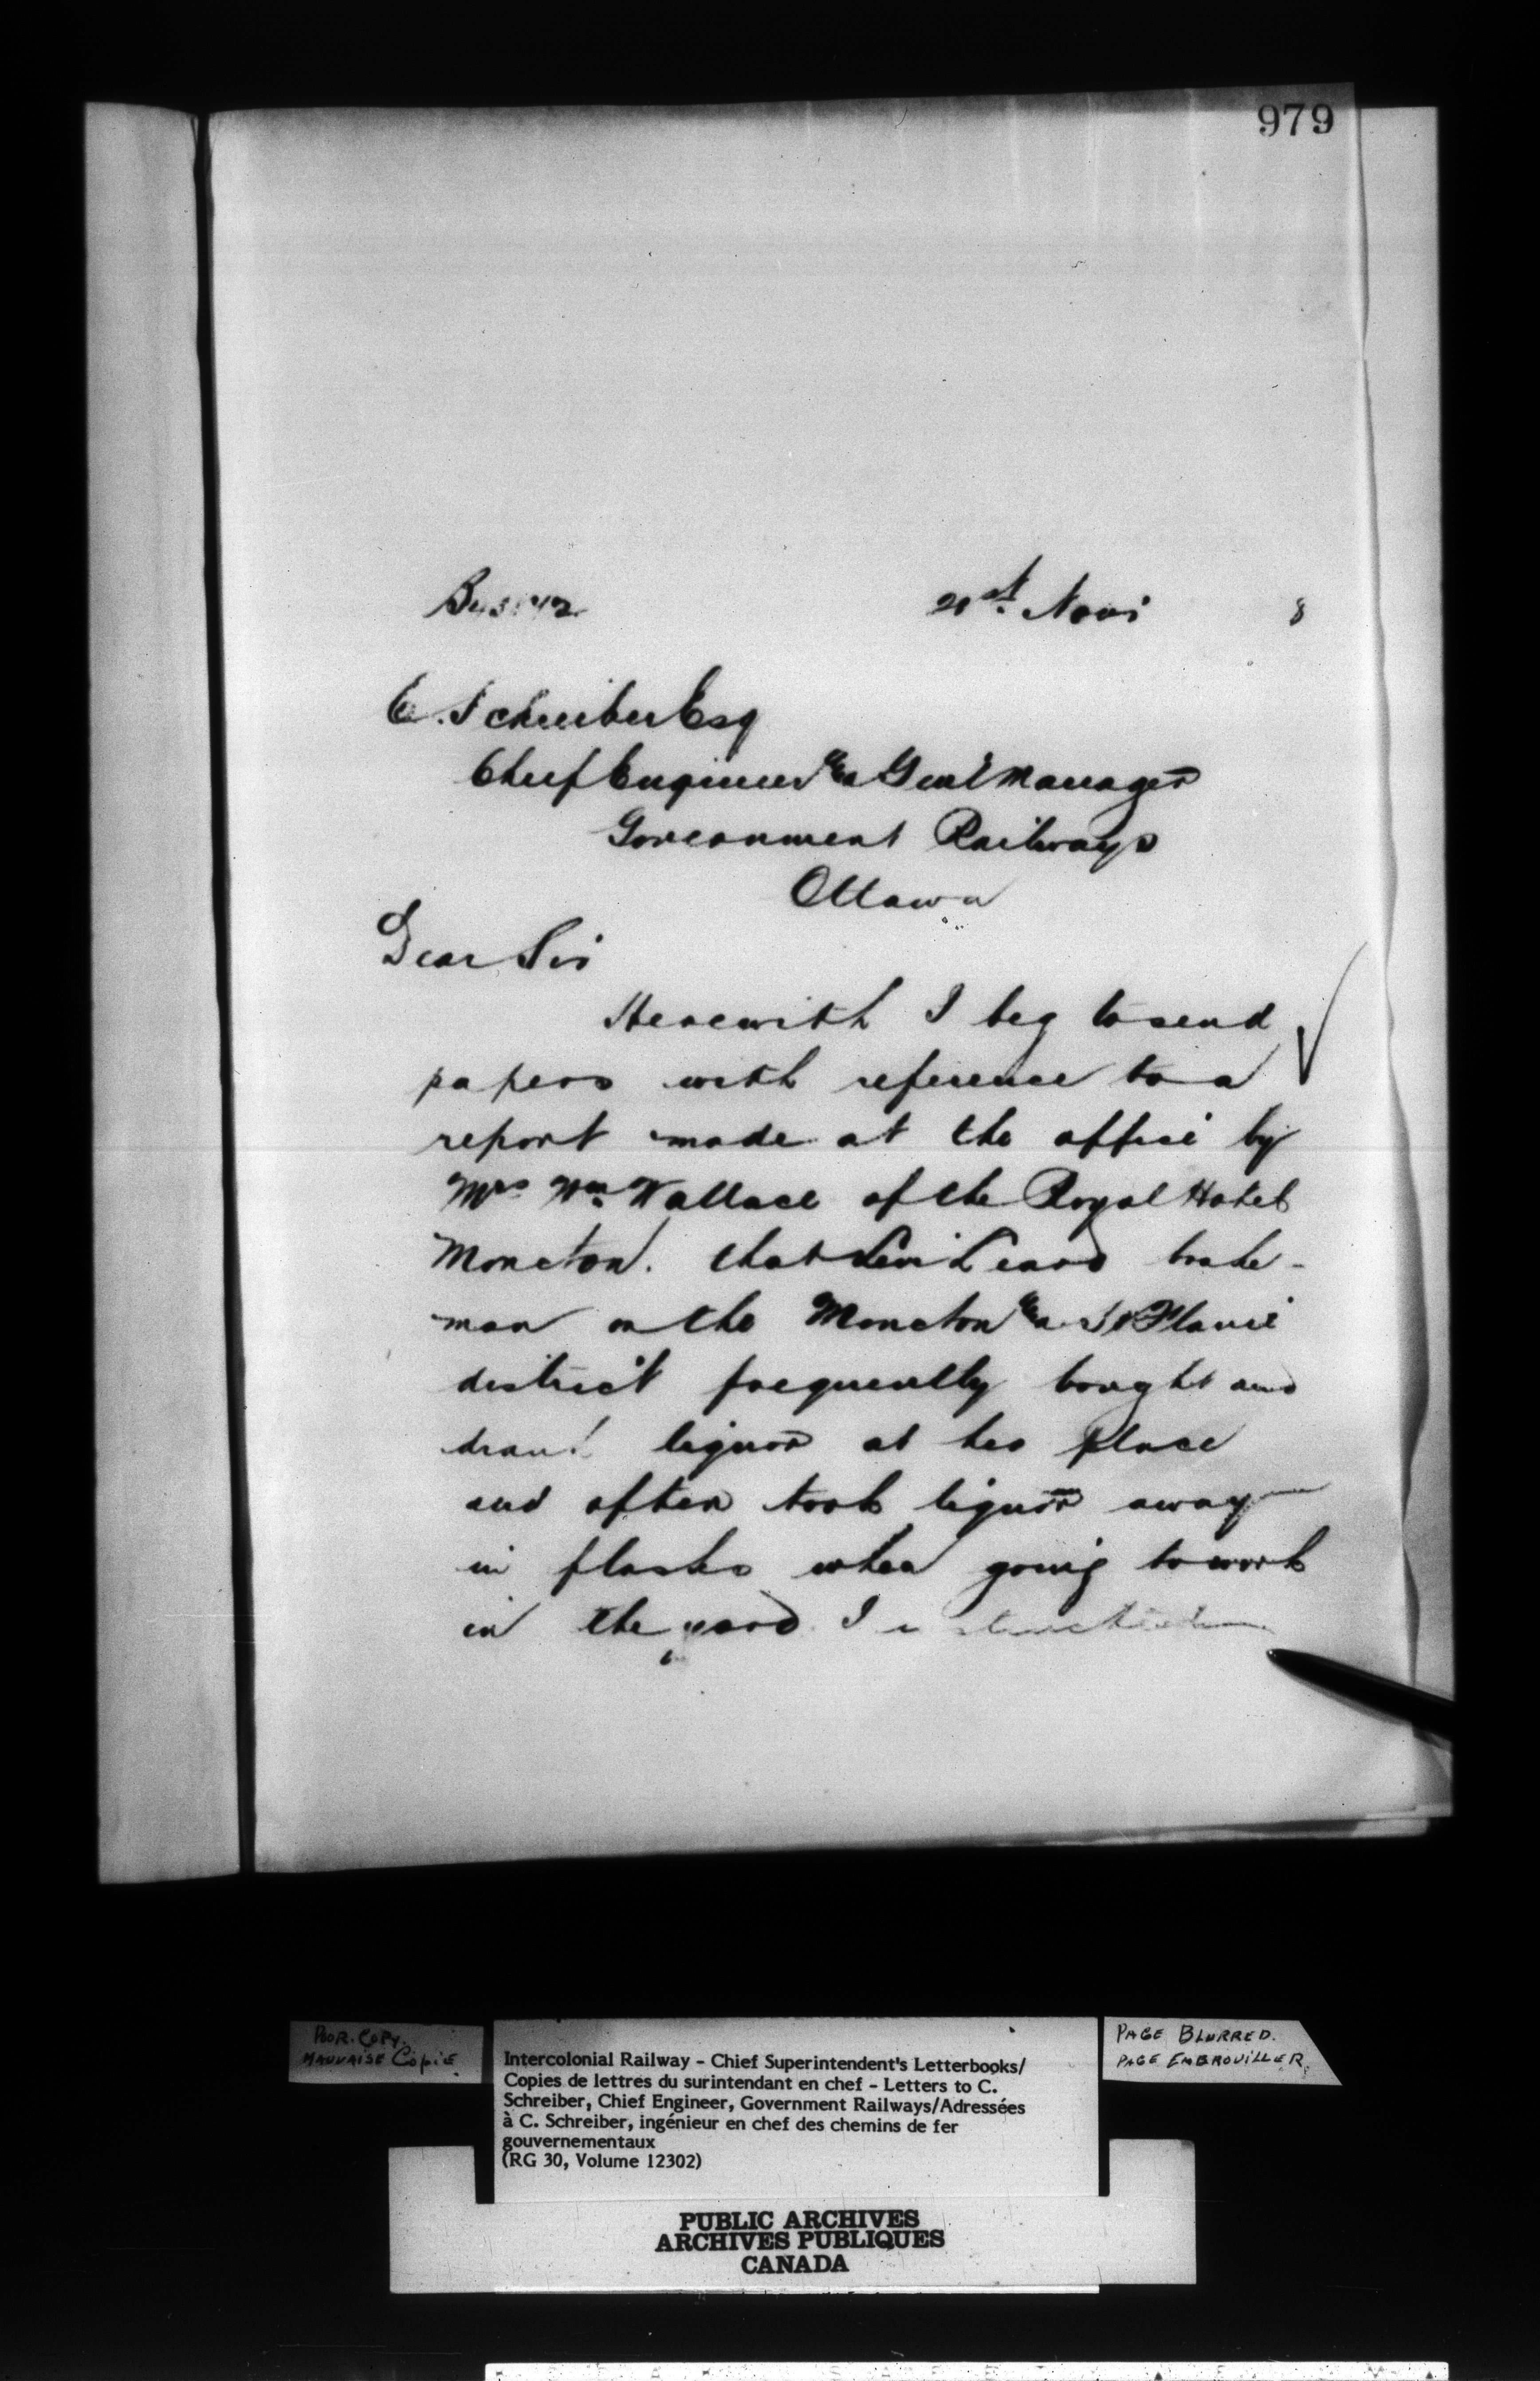 979
21st Novr 8
C. Schreiber Esq
Chief Engineer & Genl Manager
Government Railways
Ottawa
Dear Sir
Herewith I beg to send
papers with reference to a
report made at the office by
Mrs Wm Wallace of the Royal Hotel
Moncton. that Levi Leard brake-
man on the Moncton & St Flavie
district frequently bought and
drank liquor at her place
and often took liquor away
in flasks when going to work
in the yard. I
POOR COPY.
MAUVAISE COPIE
PAGE BLURRED.
PAGE EMBROUILLER.
Intercolonial Railway - Chief Superintendent's Letterbooks/
Copies de lettres du surintendant en chef - Letters to C.
Schreiber, Chief Engineer, Government Railways/Adressées
à C. Schreiber, ingénieur en chef des chemins de fer
gouvernementaux
(RG 30, Volume 12302)
PUBLIC ARCHIVES
ARCHIVES PUBLIQUES
CANADA